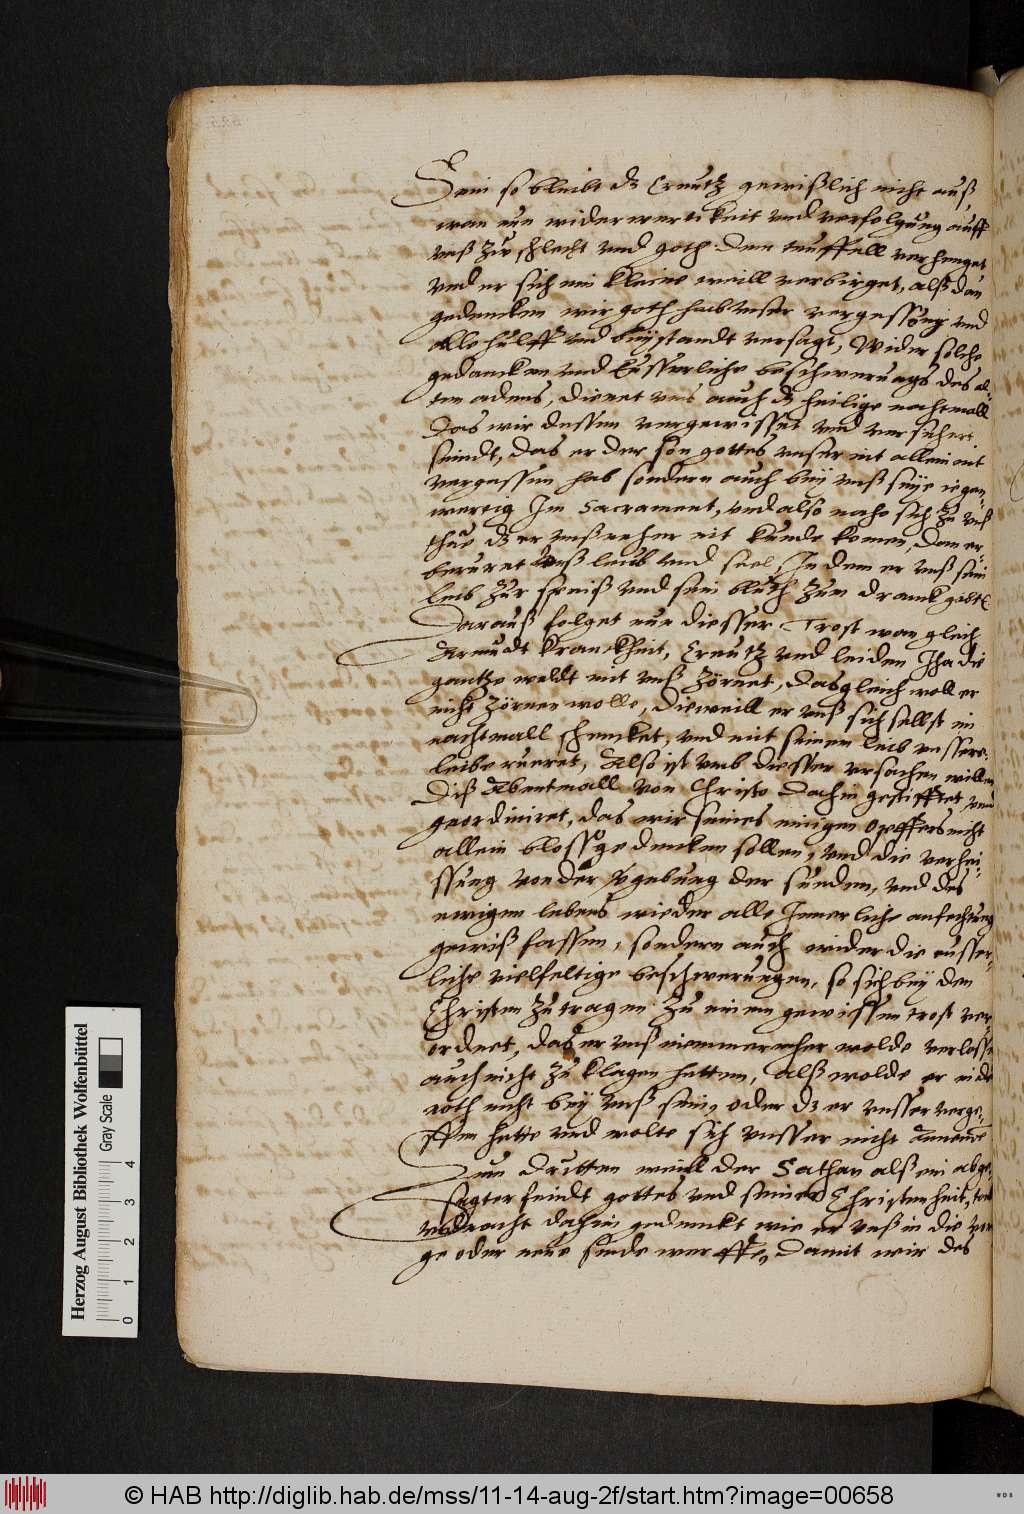 Sein so bleibt dz Creutz gewißlich nicht auß,
wan nun widerwertikeit vnd verfolgung auff
vnß zur schlecht vnd goth dem teuffell verhenget
vnd er sich ein kleine weill verbirget, alß dan
gedencken wir goth hab vnser vergessen vnd
alle hulff vnd beystandt versagt, Wider solche
gedancken vnd eusserliche beschwerungs des al-
ten adens, dienet vns auch dz heilige nachtmall
Das wir dessen vergewisset vnd versichert
seindt, das er der son gottes vnser nit allein nit
vergessen hab sondern auch bey vnß seye iegen-
wertig Im Sacrament, vnd also nahe sich zu vnß
thue dz er vnß neher nit kunde komen, dan er
beruret vnß leib vnd seel In dem er vnß sein
leib zur speiß vnd sein bluth zum dranck gibt
Darauß folget nun diesser Trost wan gleich
Armudt kranckheit, Creutz vnd leiden Jha die
gantze weldt mit vnß zörnet, das gleich woll er
nicht zörnen wolle, dieweill er vnß sich selbst im
nachtmall schencket, vnd mit seinem leib vnssere
leibe rueret, Also ist vmb diesser vrsachen willen
Diß Abentmall von Christo dahin gestifftet vnd
geordiniret, das wir seines einigen opffers nicht
allein bloß gedencken sollen, vnd die verhei-
ssung von der vgebung der sunden, vnd des
ewigen lebens wieder alle Innerliche anfechtung
gewiß fassen, sondern auch wider die eusser-
liche vielfeltige beschwerungen, so sich bey den
Christen zutragen zu einem gewissen trost ver-
ordnet, das er vnß niemmermher wolde verlasse
auch nicht zu klagen hetten, alß wolde er in der
noth nicht bey vnß sein, oder dz er vnsser verge-
ssen hette vnd wolte sich vnsser nicht annemen
Zum dritten weill der Sathan alß ein abge-
sagter feindt gottes vnd seiner Christenheit,
vnd nacht dahin gedenckt wie er vnß in die
ge oder neue sunde werffe, damit wir des
Herzog August Bibliothek Wolfenbüttel
Gray Scale
0 1 2 3 4
© HAB http://diglib.hab.de/mss/11-14-aug-2f/start.htm?image=00658